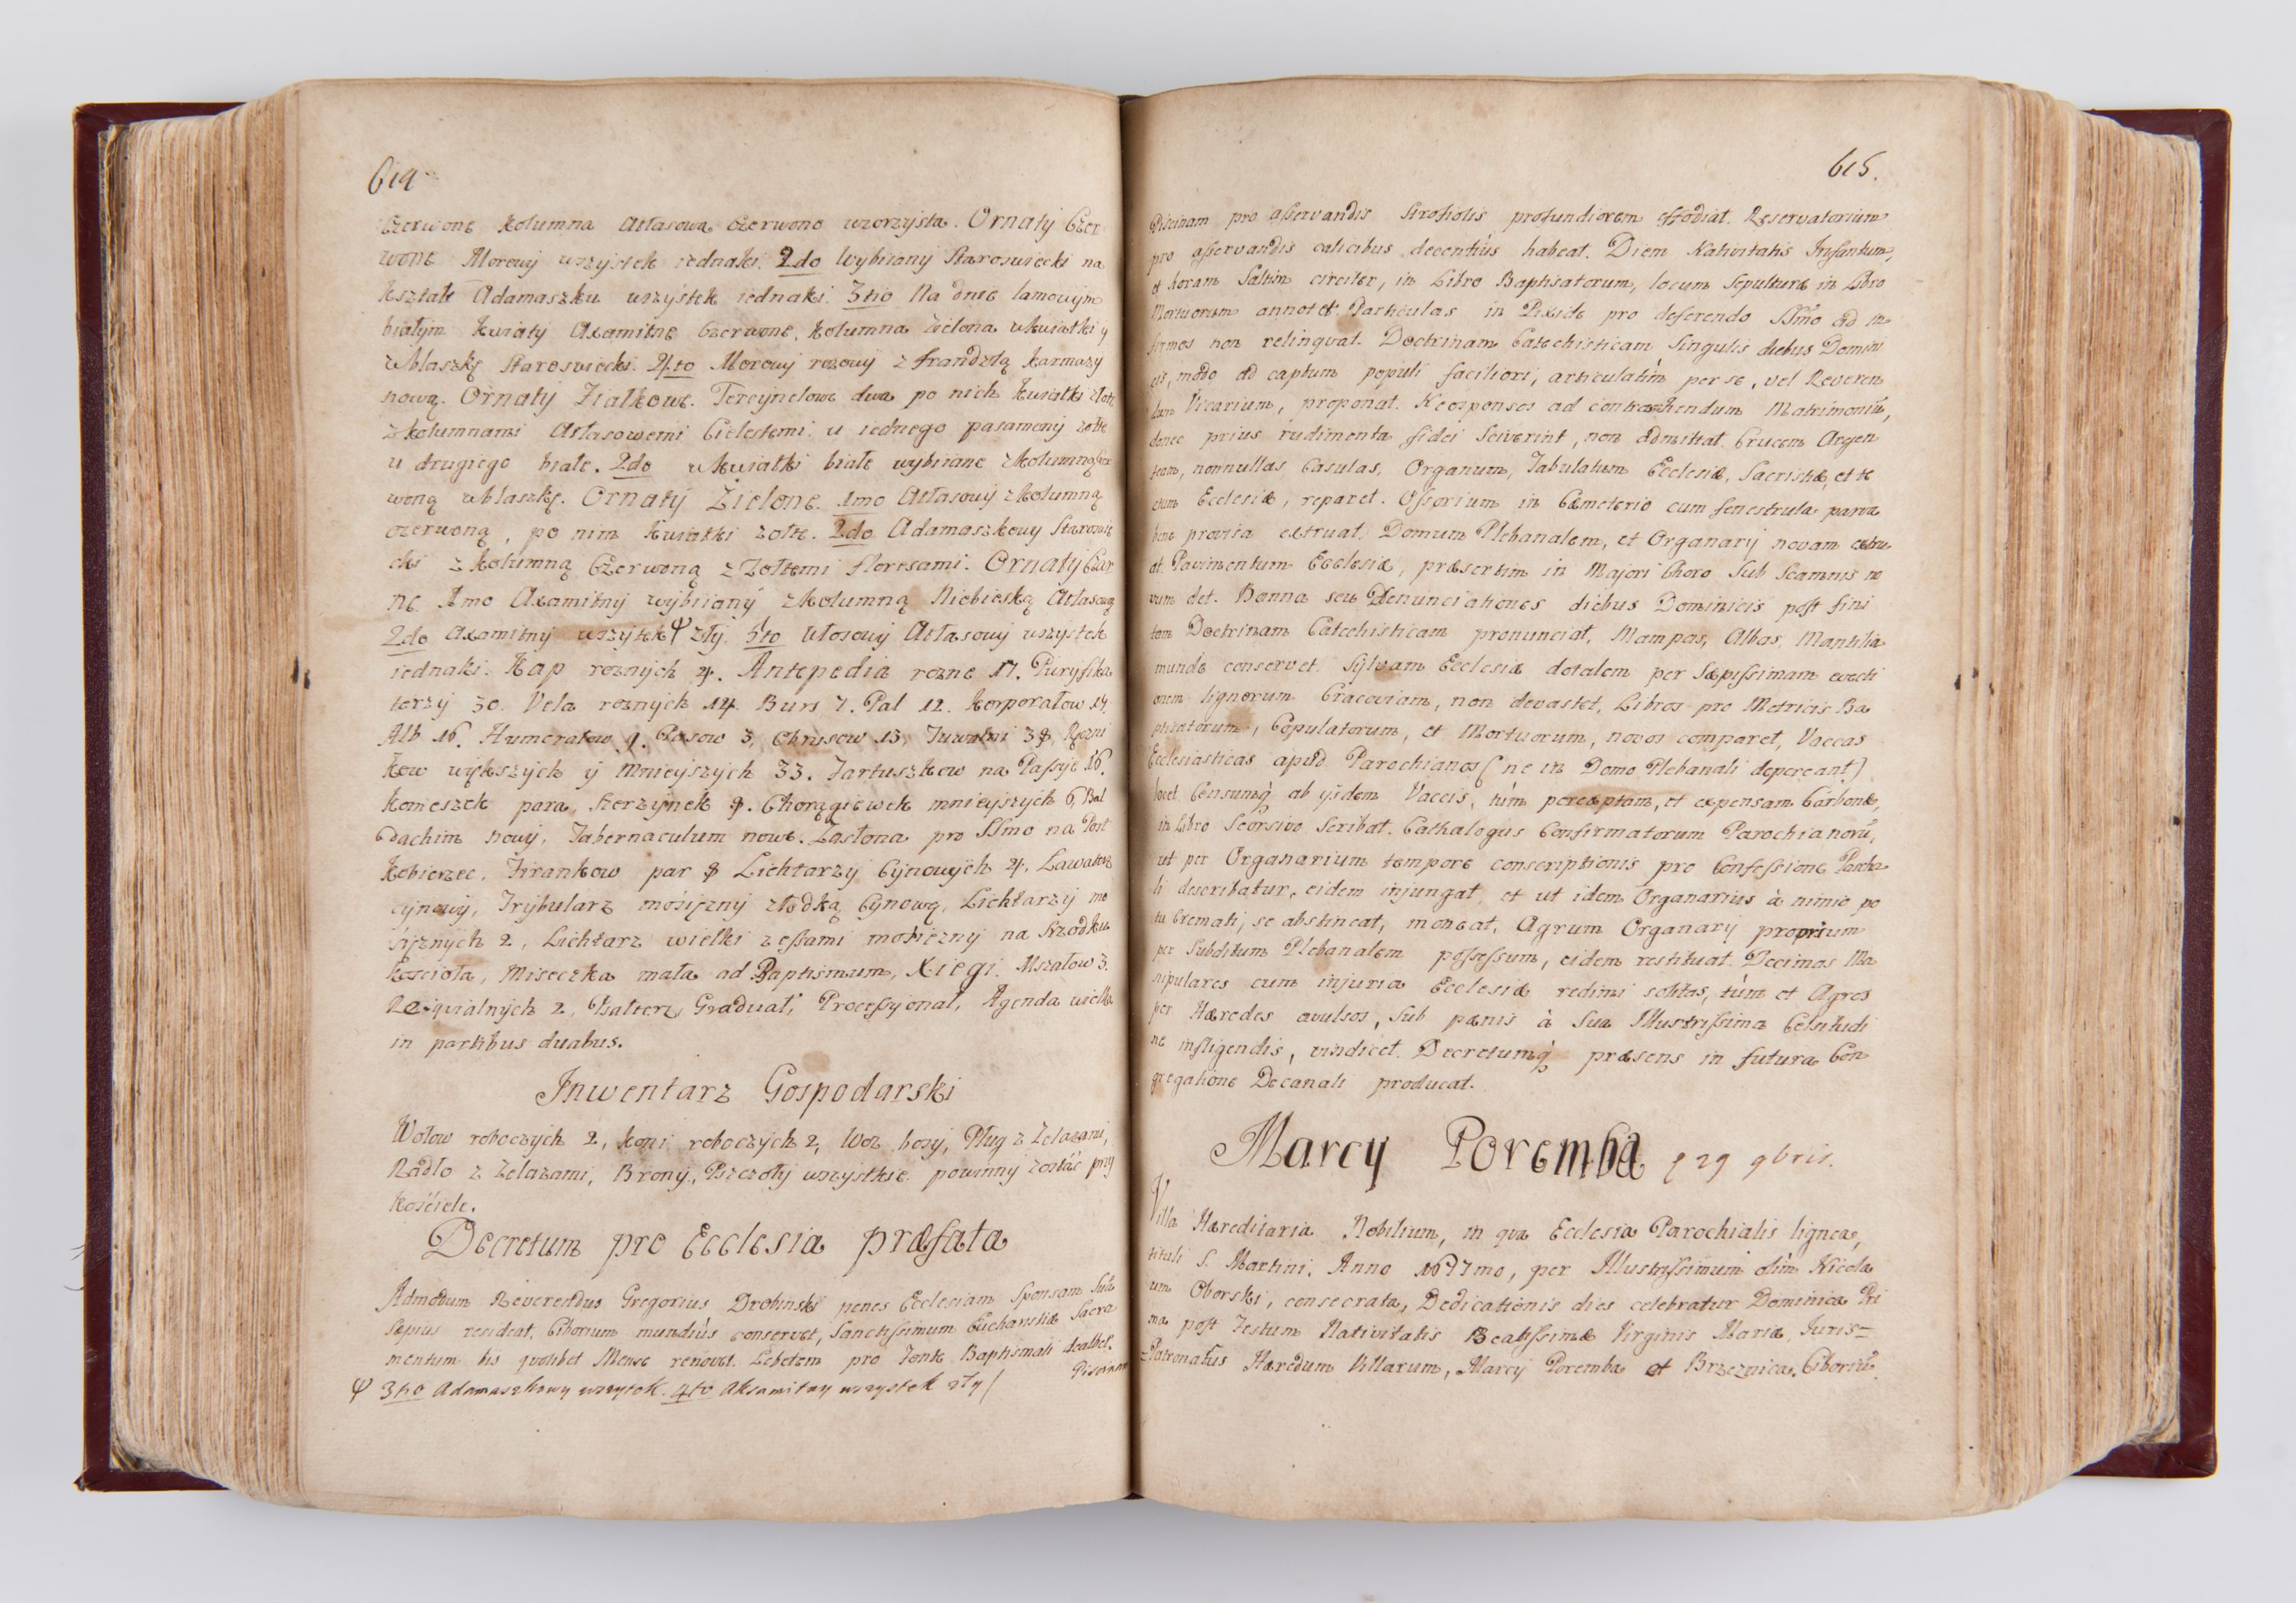 614
Czerwone kolumna Atłasowa czerwono wzorzysta. Ornaty Czer
wone Morowy wszystek iednaki. 2do Wybiiany Staroswiecki na
kształt Adamaszku wszystek iednaki. 3tio Na dnie lamowym
białym kwiaty Axamitne Czerwone, kolumna Zielona w kwiatki y
w blaszkę Staroswiecki. 4to Morowy rozowy z frandzlą karmazy
nową. Ornaty Fiałkowe. Tercynelowe dwa po nich kwiatki złote
z kolumnami Atłasowemi Cielestemi u iednego pasamony zołte
u drugiego białe. 2do w kwiatki białe wybiiane z kolumną Czer
woną w blaszkę. Ornaty Zielone. 1mo Atłasowy z kolumną
czerwoną, po nim kwiatki zołte. 2do Adamaszkowy Staroswie
cki z kolumną Czerwoną z Zołtemi floresami. Ornaty Czar
ne 1mo Axamitny wybiiany z kolumną Niebieską Atłasową
2do Axamitny wszystek ψ zły. 5to Włosowy Atłasowy wszystek
iednaki. Kap roznych 4. Antepedia rozne 17. Puryfika
terzy 30. Vela roznych 14. Burs 7. Pal 12. Korporałow 19.
Alb 16. Humerałow 9. Pasow 3, Obrusow 13, Tuwalni 38, Ręczni
kow większych y Mnieyszych 33. Fartuszkow na Passye 16.
Komeszek para, Chorągiewek mnieyszych 6, Bal
dachim nowy, Tabernaculum nowe. Zasłona pro SSmo na Post
Kobierzec, Firankow par 8 Lichtarzy Cynowych 4. Lawaterz
cynowy, Trybularz mosiężny z łodką Cynową, Lichtarzy mo
siężnych 2, Lichtarz wielki z essami mosiężny na Szrodku
Koscioła, Miseczka mała ad Baptismum, Xięgi. Mszałow 3.
Requialnych 2, Psalterz Graduał, Processyonał, Agenda wielka
in partibus duabus.
Inwentarz Gospodarski
Wołow roboczych 2, koni roboczych 2, Woz bosy, Pług z Zelazami,
Radło z Zelazami, Brony, Pszczoły wszystkie powinny zostać przy
Kościele.
Decretum pro Ecclesia præfata
Admodum Reverendus Gregorius Drohinski penes Ecclesiam Sponsam Suā
Sæpius resideat, Ciborium mundiùs conservet, Sanctissimum Eucharistiæ Sacra
mentum bis quolibet Mense renovet. Lebetem pro Fonte Baptismali dealbet.
Piscinam
ψ 3tio Adamaszkowy wszytek. 4to Aksamitny wszystek zły /
615.
Piscinam pro asservandis profundiorem effodiat. Reservatorium
pro asservandis calicibus decentiùs habeat. Diem Nativitatis Infantum,
et horam Saltim circiter, in Libro Baptisatorum, locum Sepulturæ in Libro
Mortuorum annotet. Particulas in Pixide pro deferendo SSmo ad in
firmos non relinquat. Doctrinam Catechisticam Singulis diebus Domini
cis, modo ad captum populi faciliori, articulatim per se, vel Reveren
dum Vicarium, proponat. Neosponsos ad contrahendum Matrimoniū,
donec prius rudimenta fidei Sciverint, non admittat. Crucem Argen
team, nonnullas Casulas, Organum, Tabulatum Ecclesiæ, Sacristiæ, et te
ctum Ecclesiæ, reparet. Ossorium in Cæmeterio cum fenestrula parva
bene provisa extruat. Domum Plebanalem, et Organarij novam extru
at. Pavimentum Ecclesiæ, præsertim in Majori Choro Sub Scamnis no
vum det. Banna seu Denunciationes diebus Dominicis post fini
tam Doctrinam Catechisticam pronunciat, Mampas, Albas, Mantilia
munde conservet. Sylvam Ecclesiæ dotalem per Sæpissimam evecti
onem lignorum Cracoviam, non devastet, Libros pro Metricis Ba
ptisatorum, Copulatorum, et Mortuorum, novos comparet, Vaccas
Ecclesiasticas apud Parochianos (ne in Domo Plebanali depereant)
locet Censumq́ ab ijsdem Vaccis, tùm perceptam, et expensam Carbonæ,
in Libro Seorsivo Scribat. Cathalogus Confirmatorum Parochianorū,
ut per Organarium tempore conscriptionis pro Confessione Pascha
li describatur, eidem injungat, et ut idem Organarius à nimio po
tu Cremati, se abstineat, moneat, Agrum Organarij proprium
per Subditum Plebanalem possessum, eidem restituat. Decimas Ma
nipulares cum injuria Ecclesiæ redimi solitas, tùm et Agros
per Hæredes avulsos, sub pœnis à Sua Illustrissima Celsitudi
ne infligendis, vindicet. Decretumq́ præsens in futura Con
gregatione Decanali producat.
Marcy Poremba 29 9bris.
Villa Hæreditaria Nobilium, in qua Ecclesia Parochialis lignea,
tituli S. Martini, Anno 1677mo, per Illustrissimum olim Nicola
um Oborski, consecrata, Dedicationis dies celebratur Dominica Pri
ma post Festum Nativitatis Beatissimæ Virginis Mariæ, Juris=
=Patronatûs Hæredum Villarum, Marcy Poremba et Brzeznica. Ciboriū